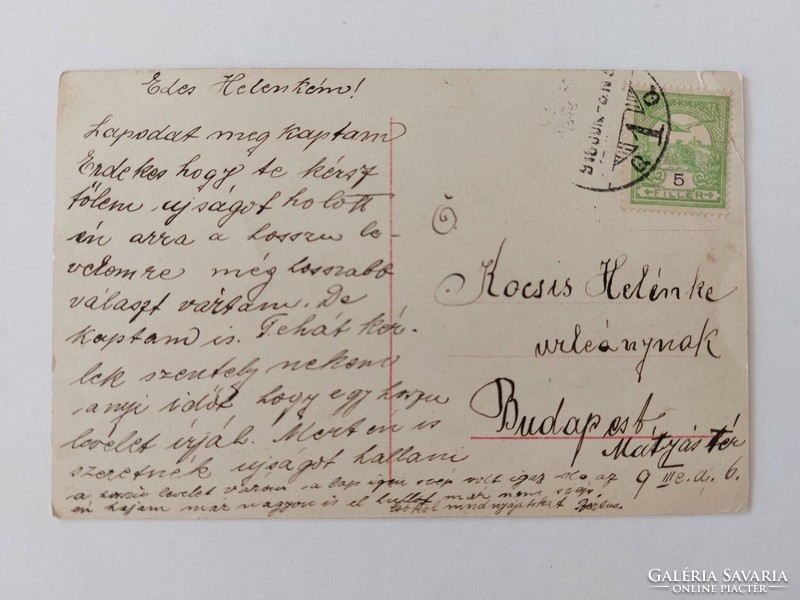 Edes Helenkém!
Lapodat meg kaptam
Erdekes hogy te kérsz
tőlem ujságot holott
én arra a hosszu le-
velemre még hosszabb
választ vártam. De
kaptam is. Tehát kér-
lek szentelj nekem
anyi időt hogy egy hoszu
levelet írjál. Mert én is
szeretnék ujságot hallani
a levelet várom a lap igen szép volt igaz de az
én hajam már nagyon is el hullot már nem
Csókol mindnyájatokat
Ö
Kocsis Helénke
urleánynak
Budapest
Mátyás tér
9 III e. d. 6.
MAGY. KIR. POSTA
5
FILLER
GALÉRIA SAVARIA
ONLINE PIACTÉR